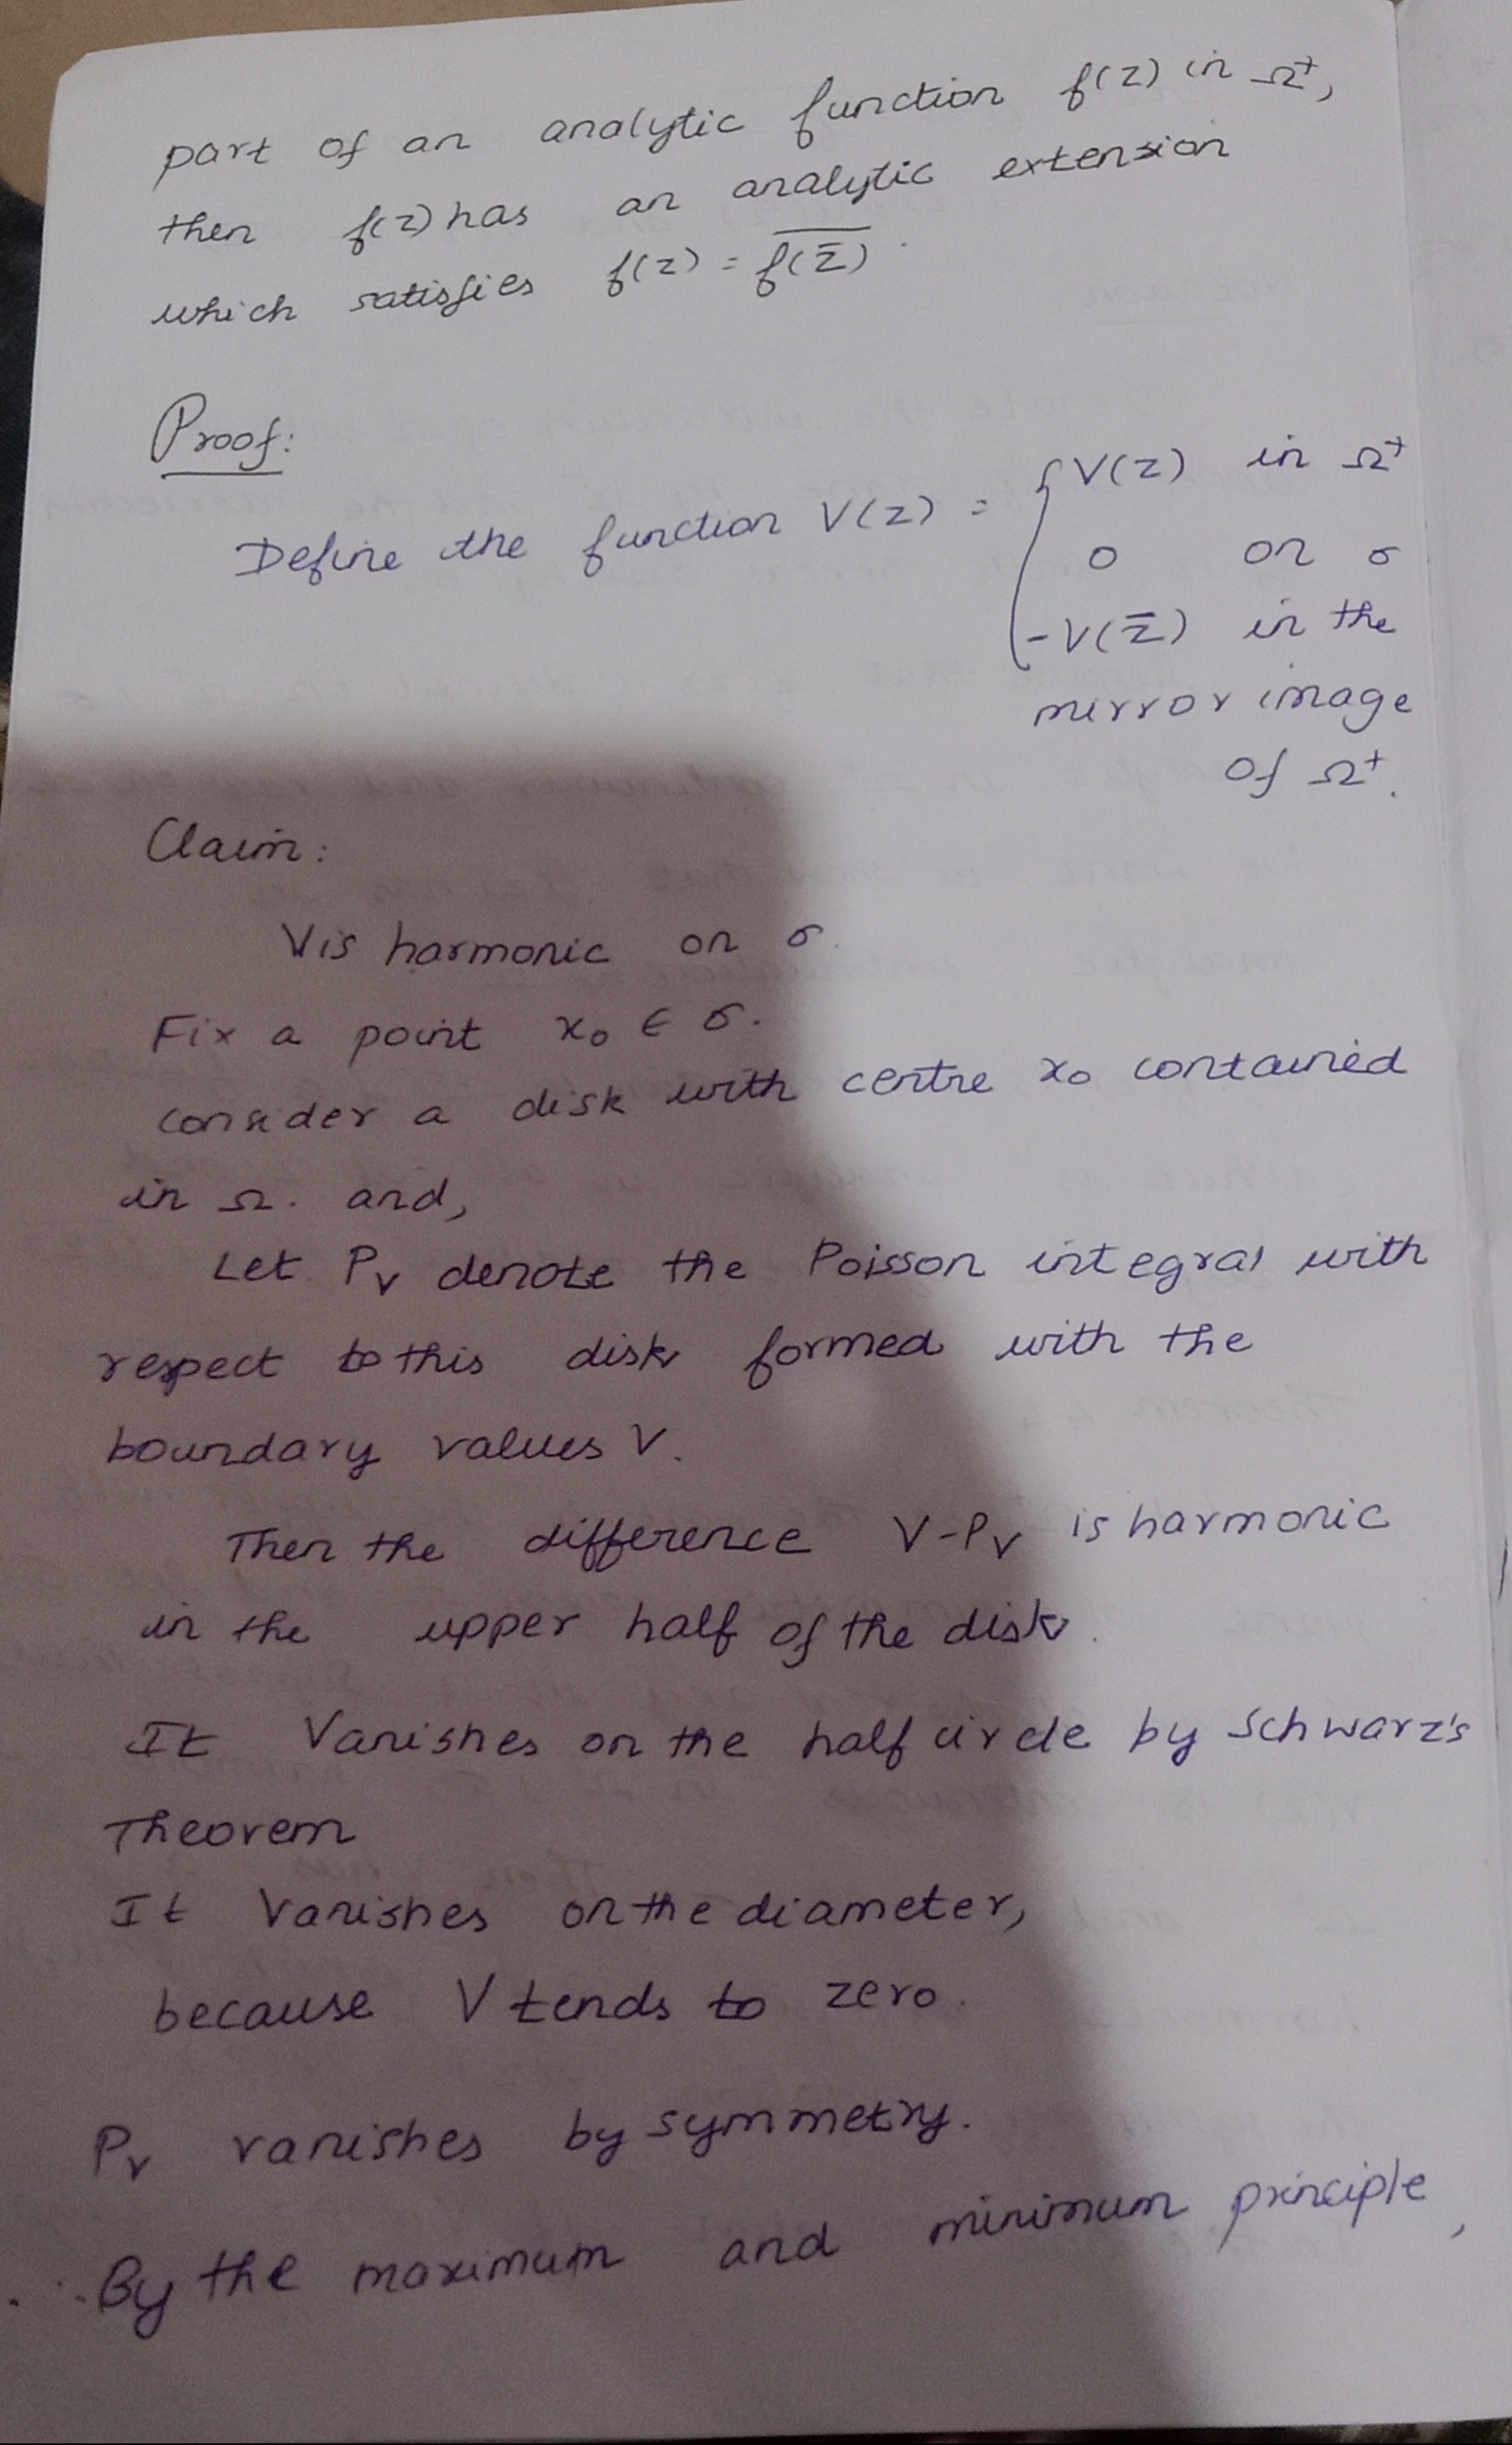 part of an analytic function f(z) in Ω⁺,
then f(z) has an analytic extension
which satisfies f(z) = \overline{f(z̄)}.
Proof:
Define the function V(z) = { V(z) in Ω⁺
0 on σ
-V(z̄) in the
mirror image
of Ω⁺.
Claim:
V is harmonic on σ.
Fix a point x₀ ∈ σ.
consider a disk with centre x₀ contained
in Ω. and,
Let Pᵥ denote the Poisson integral with
respect to this disk formed with the
boundary values V.
Then the difference V-Pᵥ is harmonic
in the upper half of the disk.
It Vanishes on the half circle by Schwarz's
Theorem
It Vanishes on the diameter,
because V tends to zero.
Pᵥ vanishes by symmetry.
∴ By the maximum and minimum principle,